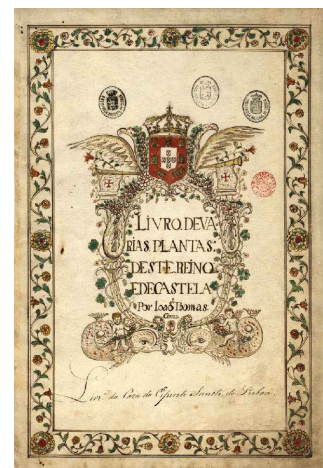 LIVRO.DEVA
RIAS.PLANTAS.
DESTE.REINO
EDECASTELA
Por Ioaõ Thomas
Correa
Livr.ª da Caza do Espirito Sancto de Lisboa